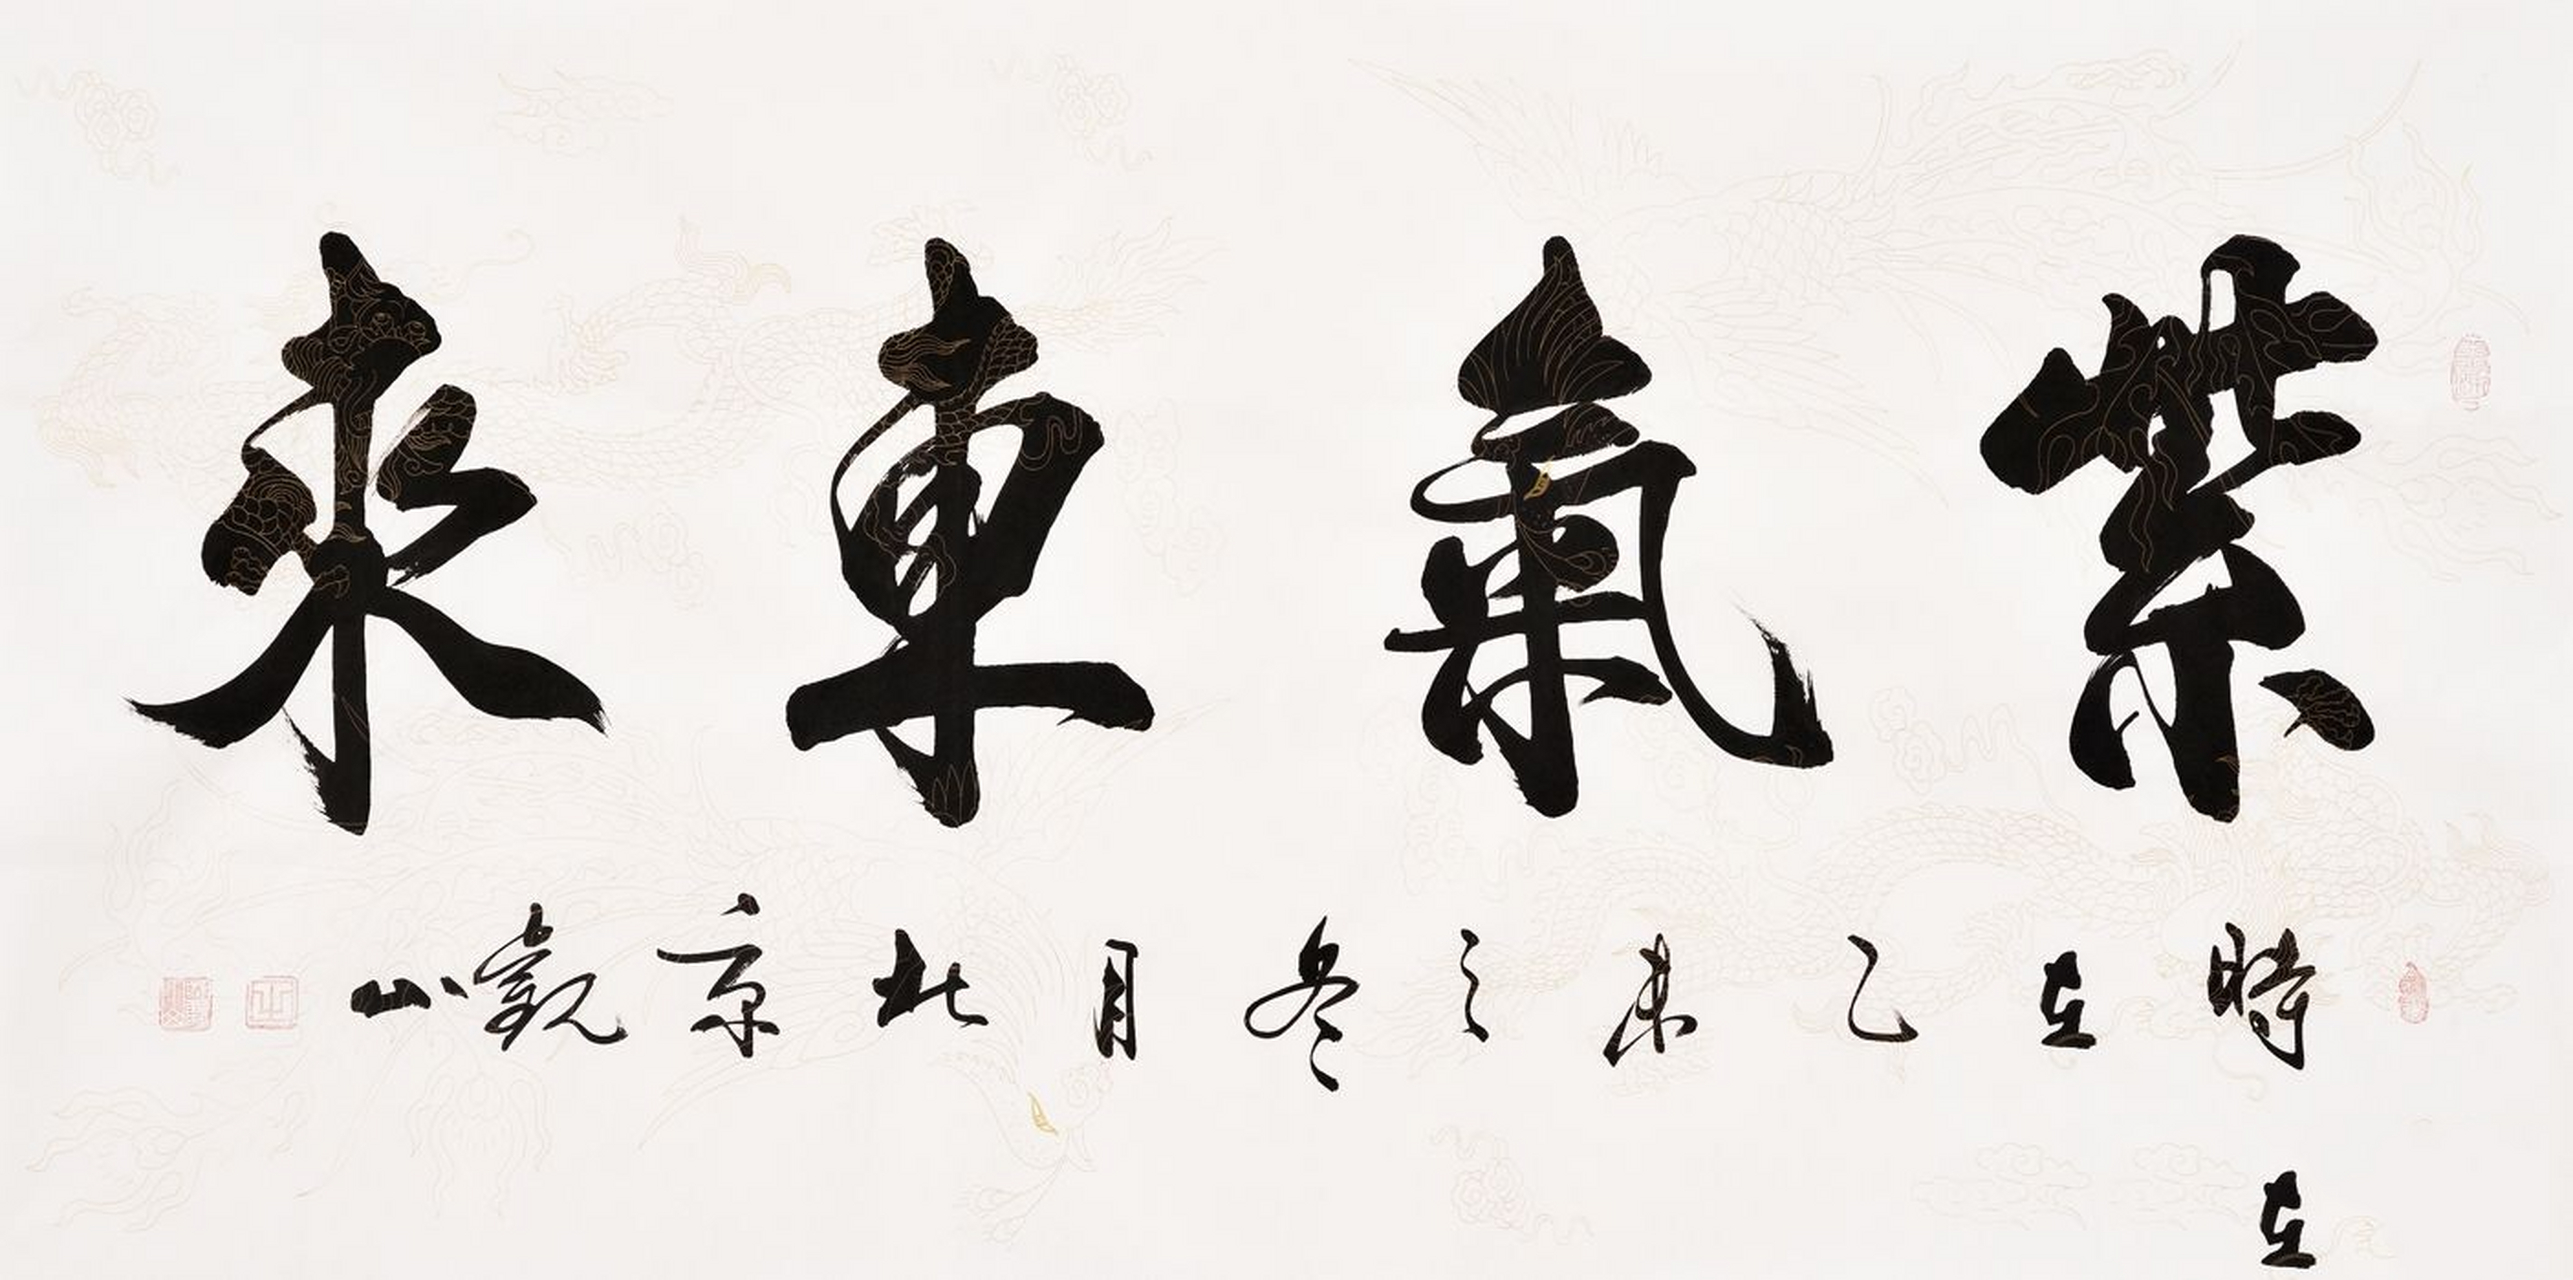 紫氣東來
時在乙未之冬月北京觀山
在